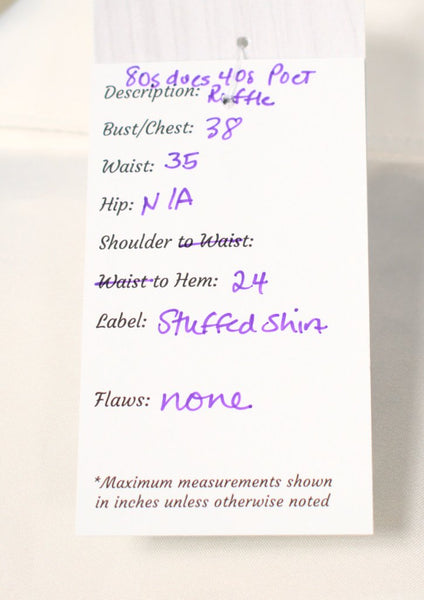 80s does 40s Poet
Description: Ruffle
Bust/Chest: 38
Waist: 35
Hip: N/A
Shoulder to Waist:
Waist to Hem: 24
Label: Stuffed Shirt
Flaws: none
*Maximum measurements shown
in inches unless otherwise noted